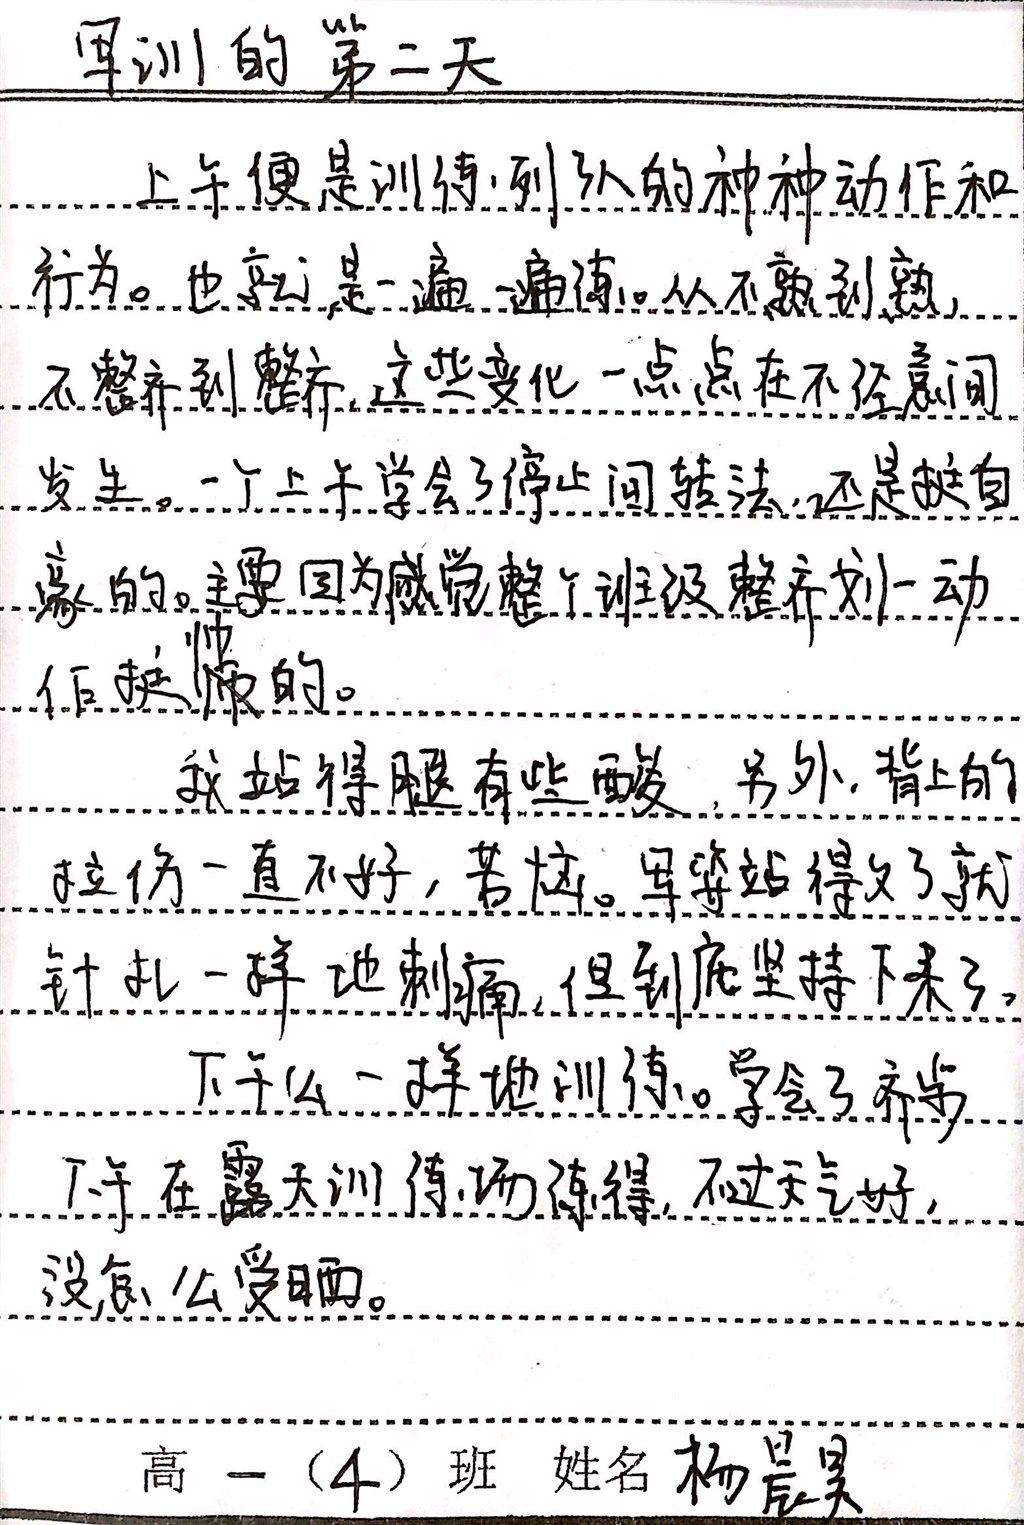 军训的第二天
上午便是训练列队的种种动作和
行为。也就是一遍一遍练。从不熟到熟,
不整齐到整齐,这些变化一点点在不经意间
发生。一个上午学会了停止间转法,还是挺自
豪的。主要因为感觉整个班级整齐划一动
作挺帅的。
我站得腿有些酸,另外,背上的
拉伤一直不好,苦恼。军姿站得久了就
针扎一样地刺痛,但到底坚持下来了。
下午么一样地训练。学会了齐步
下午在露天训练场练得,不过天气好,
没怎么受晒。
高一(4)班 姓名 杨晨昊